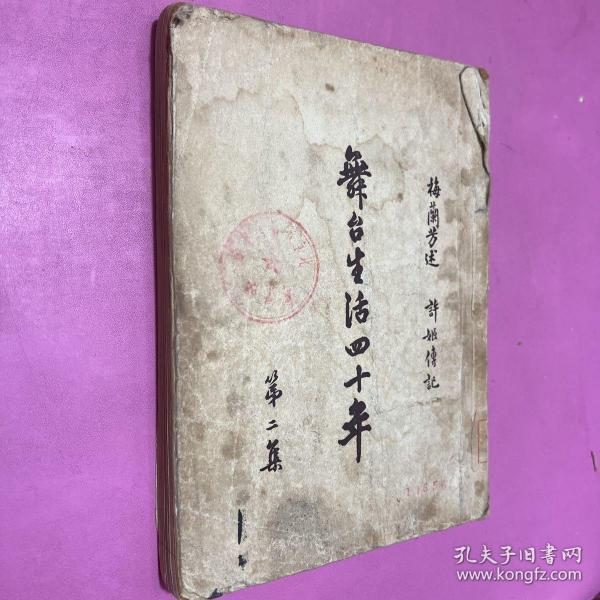 梅蘭芳述 許姬傳記
舞台生活四十年
第二集
孔夫子旧书网
www.kongfz.com